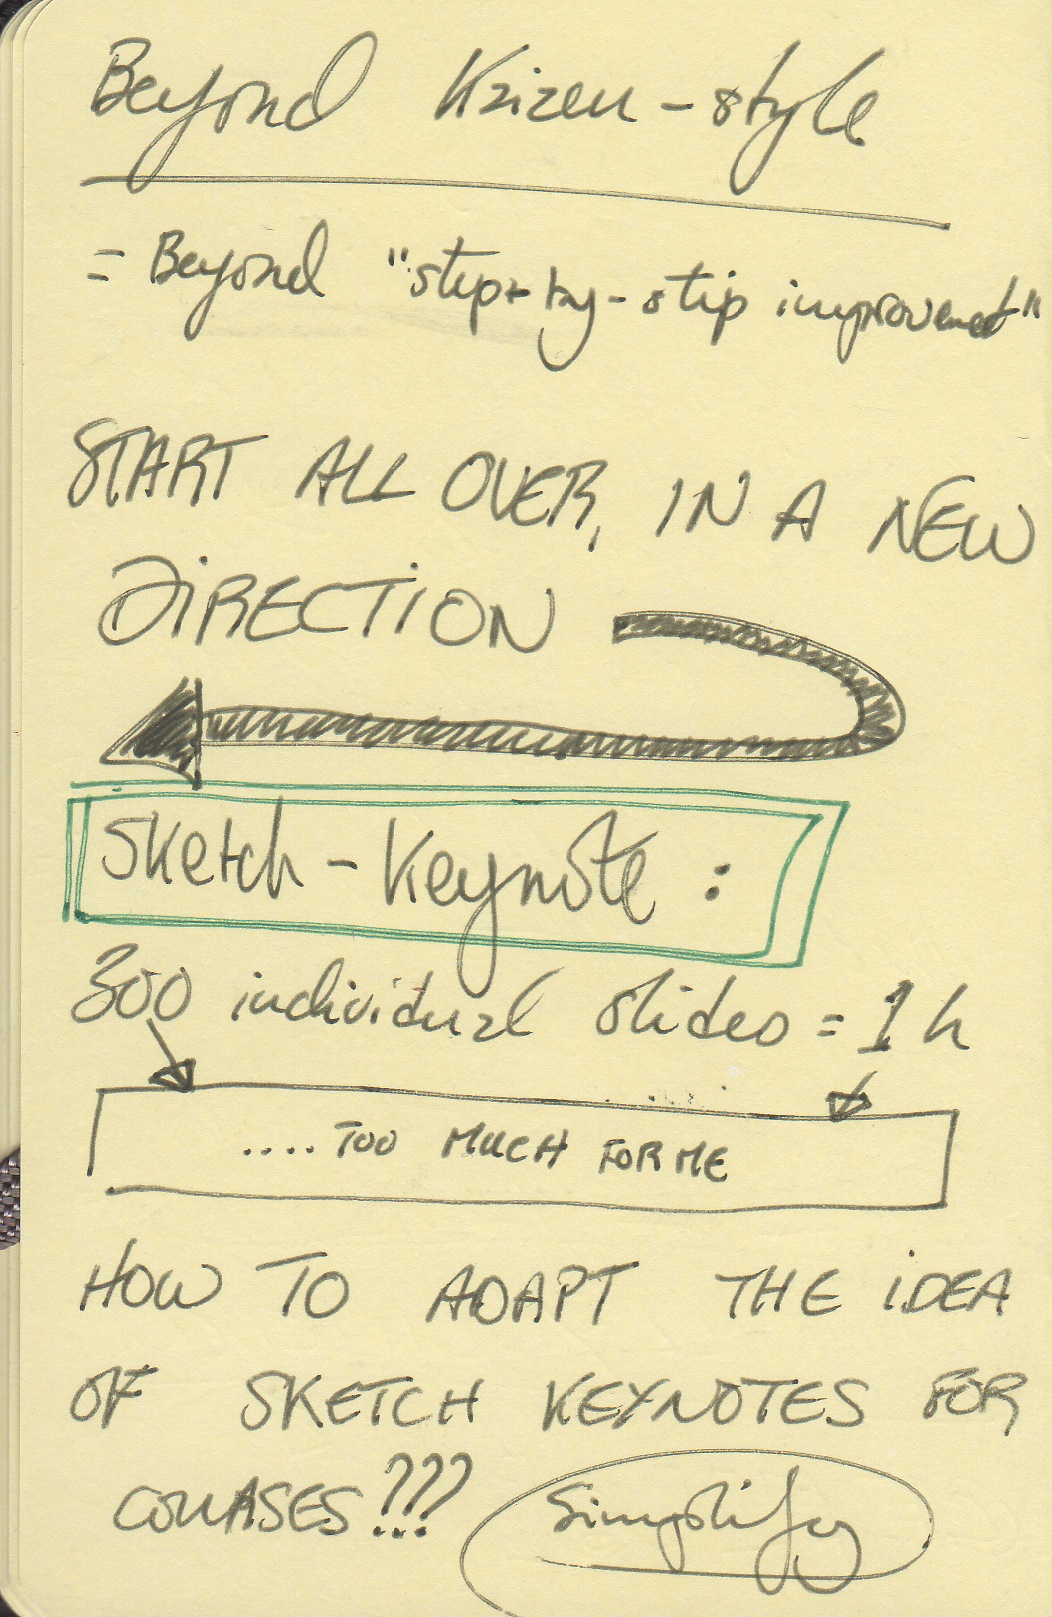 Beyond Kaizen-style
= Beyond "step-by-step improvement"
START ALL OVER, IN A NEW
DIRECTION
Sketch-Keynote:
300 individual slides = 1h
....TOO MUCH FOR ME
HOW TO ADAPT THE IDEA
OF SKETCH KEYNOTES FOR
COURSES!???
Simplify